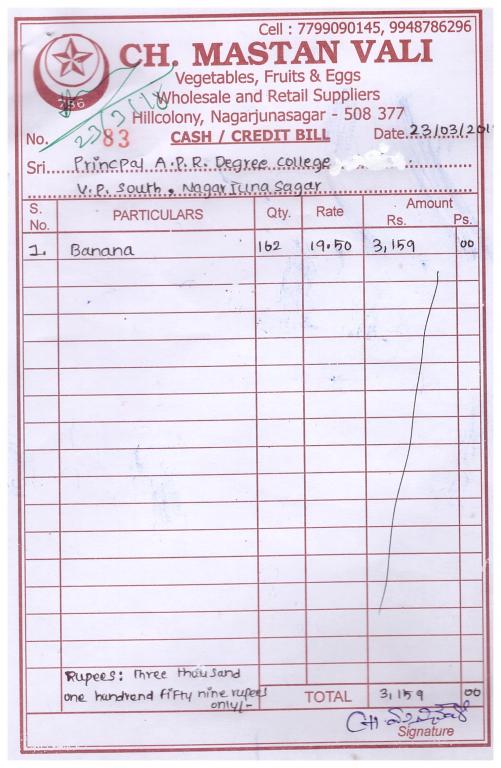 Cell : 7799090145, 9948786296
CH. MASTAN VALI
786
Vegetables, Fruits & Eggs
Wholesale and Retail Suppliers
Hillcolony, Nagarjunasagar - 508 377
No. 83 CASH / CREDIT BILL Date 23/03/201
Sri. Principal A.P.R. Degree college
V.P. South, Nagarjuna Sagar
S. No. PARTICULARS Qty. Rate Amount Rs. Ps.
1. Banana 162 19.50 3,159 00
Rupees: Three thousand
one hundrend fifty nine rupees
only/-
TOTAL 3,159 00
Signature